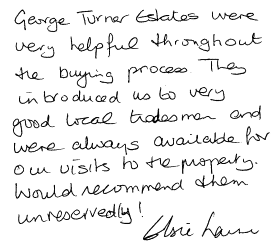 George Turner Estates were
very helpful throughout
the buying process. They
introduced us to very
good local tradesmen and
were always available for
our visits to the property.
Would recommend them
unreservedly!